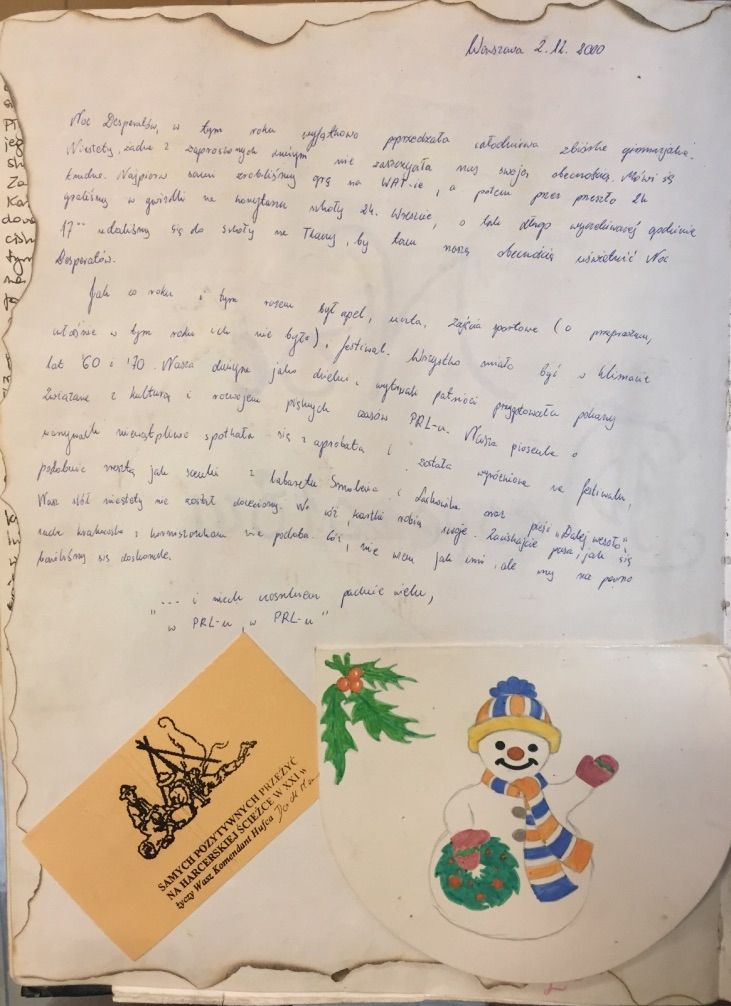 Warszawa 2.12.2000
Noc Desperatów, w tym roku wyjątkowo poprzedzała całodniowa zbiórka
Niestety, żadna z zaproszonych drużyn nie zaszczyciła nas swoją obecnością. Mówi się
trudno. Najpierw sami zrobiliśmy grę na WAT-ie, a potem przez przeszło 2h
graliśmy w gwizdki na korytarzu szkoły 24. Wreszcie, o tak długo wyczekiwanej godzinie
17⁰⁰ udaliśmy się do szkoły na Tkaczy, by tam naszą obecnością uświetnić Noc
Desperatów.
Jak co roku i tym razem był apel, musztra, zajęcia sportowe (o przepraszam,
właśnie w tym roku ich nie było), festiwal. Wszystko miało być w klimacie
lat '60 i '70. Nasza drużyna jako dzielni i wytrwali patrioci przygotowała pokazy
związane z kulturą i rozwojem pięknych czasów PRL-u. Nasza piosenka o
niewątpliwie spotkała się z aprobatą i została wyróżniona na festiwalu,
podobnie zresztą jak scenki z kabaretu Smolenia i Laskowika oraz pieśń "Dalej wesoło".
Nasz stół niestety nie został doceniony. No cóż, kartki robią swoje.
się nie podoba. Cóż, nie wiem jak inni, ale my na pewno
bawiliśmy się doskonale.
"... i niech czosnkiem pachnie wieku,
w PRL-u, w PRL-u"
SAMYCH POZYTYWNYCH PRZEŻYĆ
NA HARCERSKIEJ ŚCIEŻCE W XXI w
życzy Wasz Komendant Hufca